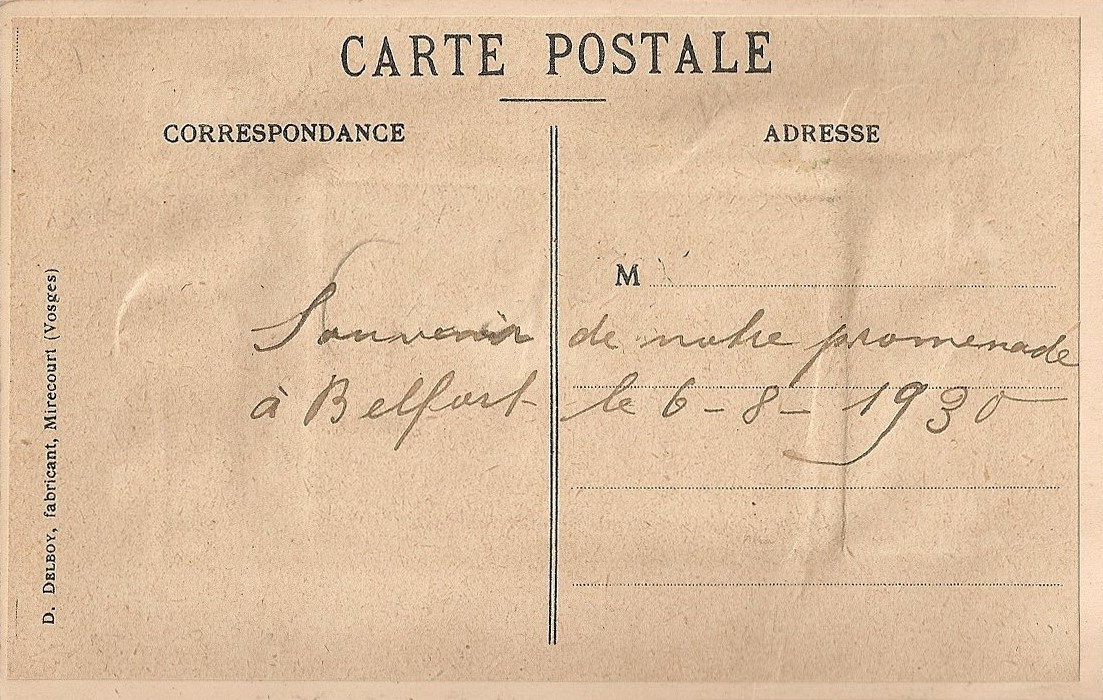 CARTE POSTALE
CORRESPONDANCE
ADRESSE
M
Souvenir de notre promenade
à Belfort le 6-8-1930
D. DELBOY, fabricant, Mirecourt (Vosges)